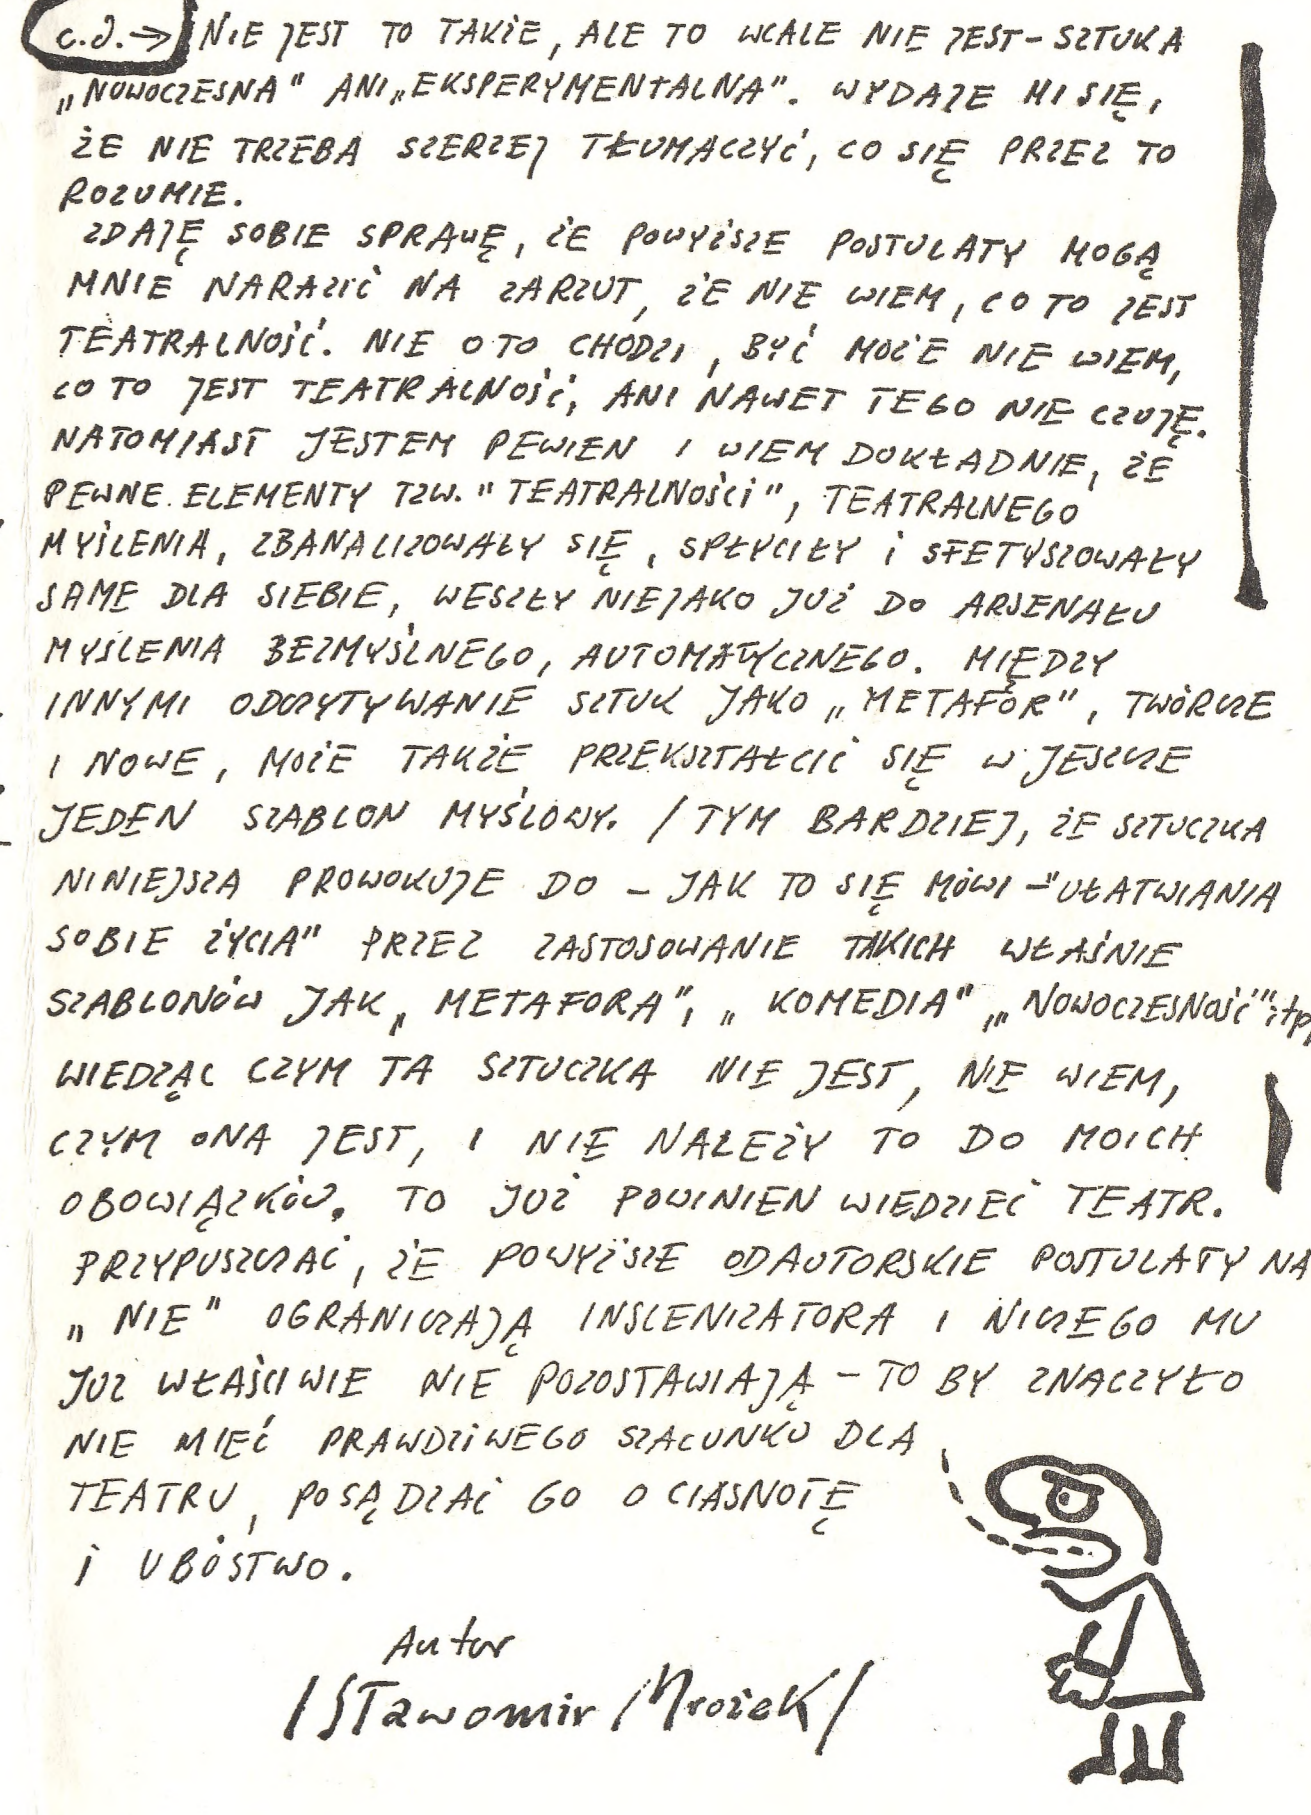 c.d.→ NIE JEST TO TAKŻE, ALE TO WCALE NIE JEST - SZTUKA
„NOWOCZESNA" ANI „EKSPERYMENTALNA". WYDAJE MI SIĘ,
ŻE NIE TRZEBA SZERZEJ TŁUMACZYĆ, CO SIĘ PRZEZ TO
ROZUMIE.
ZDAJĘ SOBIE SPRAWĘ, ŻE POWYŻSZE POSTULATY MOGĄ
MNIE NARAZIĆ NA ZARZUT, ŻE NIE WIEM, CO TO JEST
TEATRALNOŚĆ. NIE O TO CHODZI, BYĆ MOŻE NIE WIEM,
CO TO JEST TEATRALNOŚĆ, ANI NAWET TEGO NIE CZUJĘ.
NATOMIAST JESTEM PEWIEN I WIEM DOKŁADNIE, ŻE
PEWNE ELEMENTY TZW. "TEATRALNOŚCI", TEATRALNEGO
MYŚLENIA, ZBANALIZOWAŁY SIĘ, SPŁYCIŁY i SFETYSZOWAŁY
SAME DLA SIEBIE, WESZŁY NIEJAKO JUŻ DO ARSENAŁU
MYŚLENIA BEZMYŚLNEGO, AUTOMATYCZNEGO. MIĘDZY
INNYMI ODCZYTYWANIE SZTUK JAKO „METAFOR", TWÓRCZE
I NOWE, MOŻE TAKŻE PRZEKSZTAŁCIĆ SIĘ W JESZCZE
JEDEN SZABLON MYŚLOWY. / TYM BARDZIEJ, ŻE SZTUCZKA
NINIEJSZA PROWOKUJE DO - JAK TO SIĘ MÓWI - "UŁATWIANIA
SOBIE ŻYCIA" PRZEZ ZASTOSOWANIE TAKICH WŁAŚNIE
SZABLONÓW JAK „METAFORA", „KOMEDIA" „NOWOCZESNOŚĆ" itp,
WIEDZĄC CZYM TA SZTUCZKA NIE JEST, NIE WIEM,
CZYM ONA JEST, I NIE NALEŻY TO DO MOICH
OBOWIĄZKÓW. TO JUŻ POWINIEN WIEDZIEĆ TEATR.
PRZYPUSZCZAĆ, ŻE POWYŻSZE ODAUTORSKIE POSTULATY NA
„NIE" OGRANICZAJĄ INSCENIZATORA I NICZEGO MU
JUŻ WŁAŚCIWIE NIE POZOSTAWIAJĄ - TO BY ZNACZYŁO
NIE MIEĆ PRAWDZIWEGO SZACUNKU DLA
TEATRU, POSĄDZAĆ GO O CIASNOTĘ
i UBÓSTWO.
Autor
/Sławomir Mrożek/